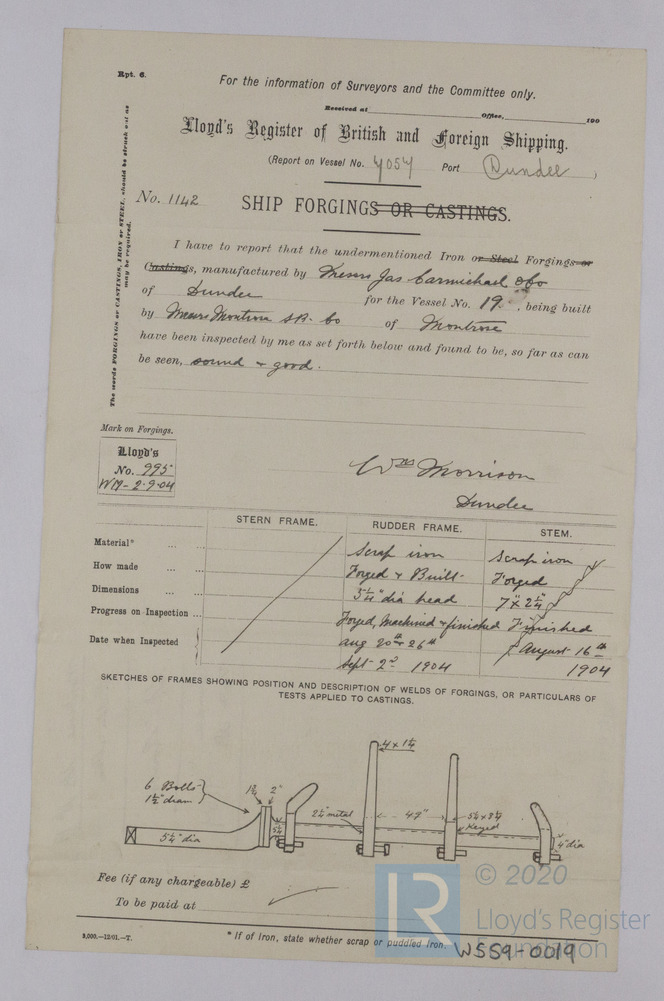 Rpt. 6.
For the information of Surveyors and the Committee only.
Received at Office, 190
Lloyd's Register of British and Foreign Shipping.
(Report on Vessel No. 4057 Port Dundee)
No. 1142
SHIP FORGINGS OR CASTINGS.
The words FORGINGS or CASTINGS, IRON or STEEL, should be struck out as
may be required.
I have to report that the undermentioned Iron or Steel Forgings or
Castings, manufactured by Messrs Jas Carmichael & Co
of Dundee for the Vessel No. 19, being built
by Messrs Montrose S.B. Co of Montrose
have been inspected by me as set forth below and found to be, so far as can
be seen, sound & good.
Mark on Forgings.
Lloyd's
No. 995
WM - 2.9.04
Wm Morrison
Dundee
STERN FRAME. RUDDER FRAME. STEM.
Material* ... ... Scrap iron Scrap iron
How made ... ... Forged & Built Forged
Dimensions ... ... 5¼" dia head 7" x 2¼"
Progress on Inspection ... Forged, Machined & finished Finished
Date when Inspected Aug 20th & 26th August 16th
Sept 2nd 1904 1904
SKETCHES OF FRAMES SHOWING POSITION AND DESCRIPTION OF WELDS OF FORGINGS, OR PARTICULARS OF
TESTS APPLIED TO CASTINGS.
4 x 1¼
6 Bolts
1½" diam
2"
2¼" metal
49"
Keyed
5¼" dia
4" dia
Fee (if any chargeable) £
To be paid at
© 2020
LR
Lloyd's Register
Foundation
3,000.—12/01.—T.
* If of iron, state whether scrap or puddled iron.
W559-0019